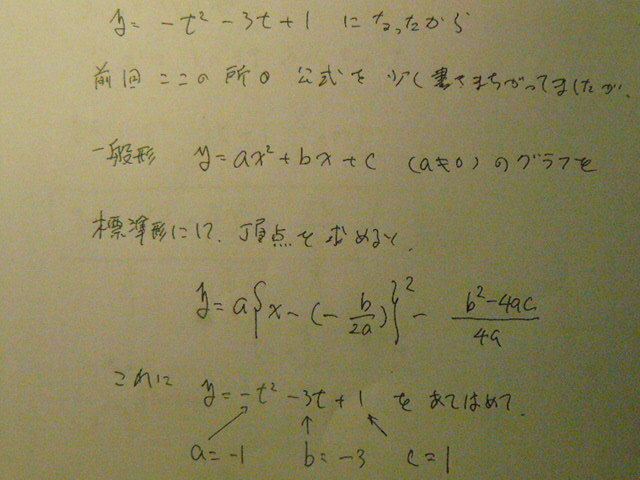 y = -t² - 3t + 1 になったから
前回ここの所の公式を少し書きまちがってましたが、
一般形 y = ax² + bx + c (a≠0) のグラフを
標準形にして、頂点を求めると、
y = a{x - (-b/2a)}² - (b²-4ac)/4a
これに y = -t² - 3t + 1 をあてはめて、
a = -1 b = -3 c = 1